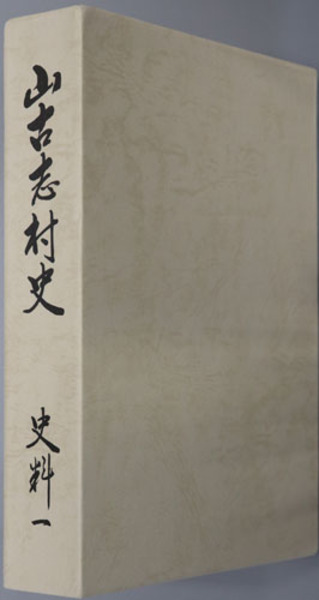 山古志村史
史料一